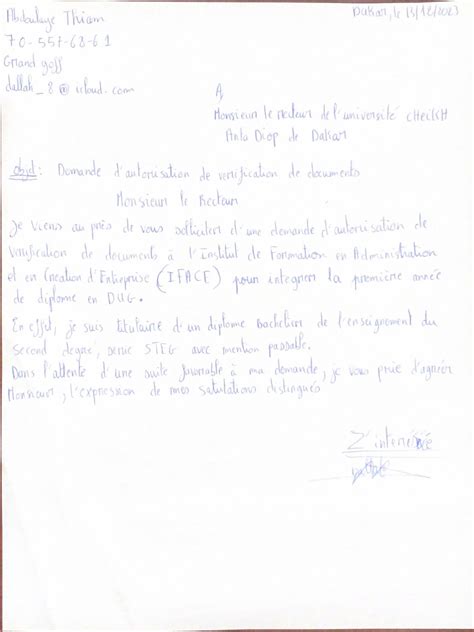 Abdoulaye Thiam
Dakar, le 13/12/2023
70-557-68-61
Grand yoff
dallah_8@icloud.com
A
Monsieur le Recteur de l'université CHeikH
Anta Diop de Dakar
objet : Demande d'autorisation de verification de documents
Monsieur le Recteur
Je viens au près de vous solliciter d'une demande d'autorisation de
verification de documents à l'Institut de Formation en Administration
et en Creation d'Entreprise (IFACE) pour integrer la première année
de diplome en DUG.
En effet, je suis titulaire d'un diplome Bachelire de l'enseignement du
Second degré, serie STEG avec mention passable.
Dans l'attente d'une suite favorable à ma demande, je vous prie d'agréer
Monsieur, l'expression de mes salutations distingués
L'interessée